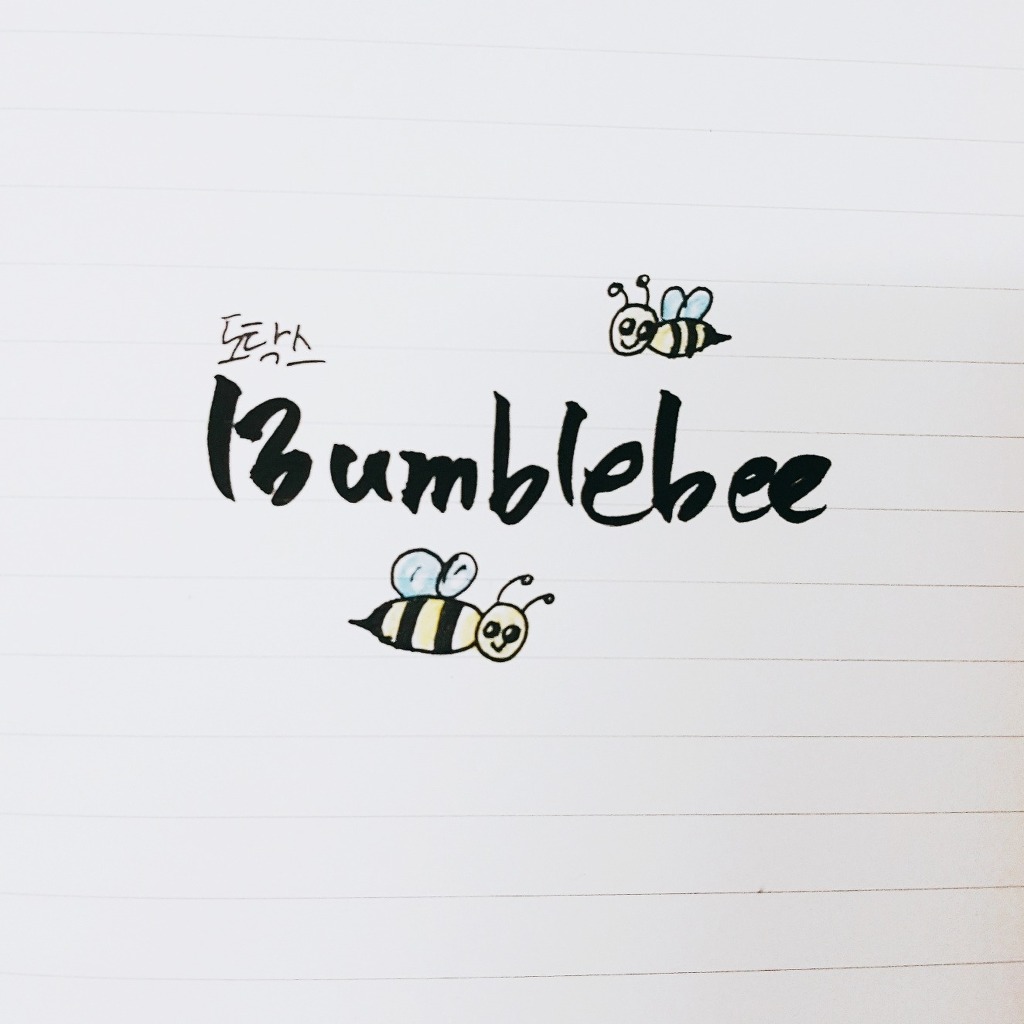 토탁스
Bumblebee